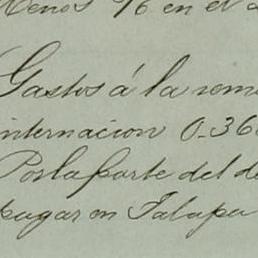 Menos 1/6 en el
Gastos á la rem
internacion 0.36
Por la parte del d
pagar en Jalapa